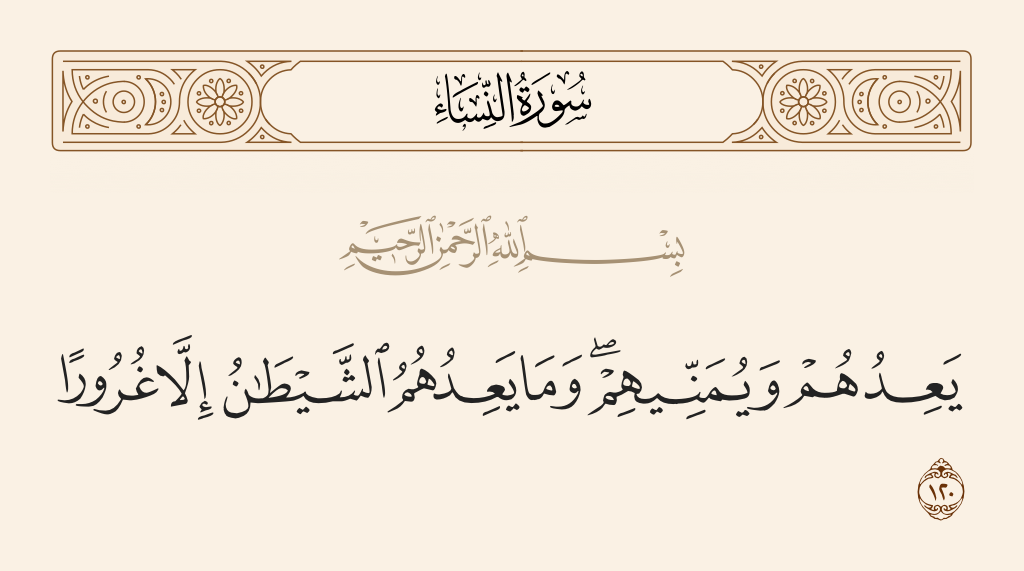 سُورَةُ النِّسَاءِ
بِسْمِ ٱللَّهِ ٱلرَّحْمَٰنِ ٱلرَّحِيمِ
يَعِدُهُمْ وَيُمَنِّيهِمْ ۖ وَمَا يَعِدُهُمُ ٱلشَّيْطَٰنُ إِلَّا غُرُورًا
١٢٠